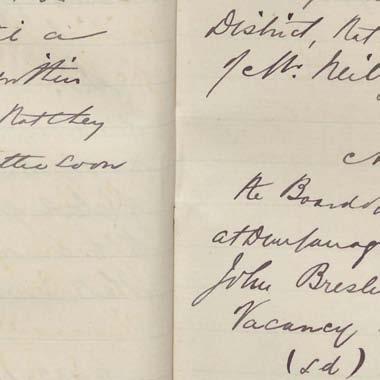 a
within
that they
the soon
District, that
of Mr. Neil
the Board of
at Dunfanag
John Bresl
Vacancy
(sd)